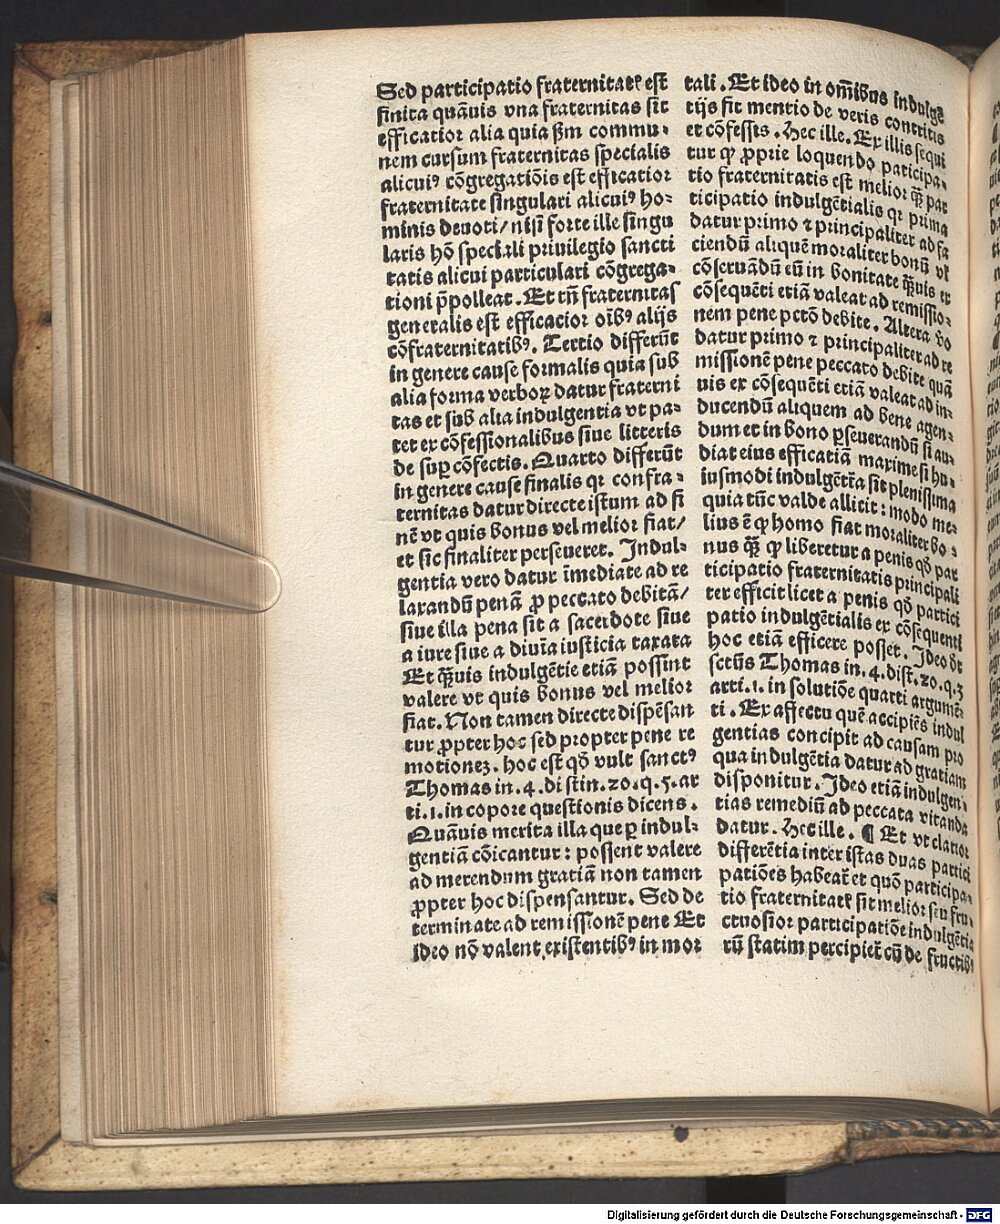 Sed participatio fraternitatꝭ est
finita quãuis vna fraternitas sit
efficatior alia quia ẞm commu-
nem cursum fraternitas specialis
alicuiꝰ cõgregatiõis est efficatior
fraternitate singulari alicuiꝰ ho-
minis deuoti/ nisi forte ille singu
laris hõ speciali priuilegio sancti
tatis alicui particulari cõgrega-
tioni p̃polleat. Et tñ fraternitas
generalis est efficacior oĩbꝰ alijs
cõfraternitatibꝰ. Tertio differũt
in genere cause formalis quia sub
alia forma verboꝝ datur fraterni
tas et sub alia indulgentia vt pa-
tet ex cõfessionalibus siue litteris
de suꝑ cõfectis. Quarto differũt
in genere cause finalis qꝛ confra-
ternitas datur directe istum ad fi
nẽ vt quis bonus vel melior fiat/
et sic finaliter perseueret. Indul-
gentia vero datur ĩmediate ad re
laxandũ penã ꝓ peccato debitã/
siue illa pena sit a sacerdote siue
a iure siue a diuĩa iusticia taxata
Et q̃uis indulgẽtie etiã possint
valere vt quis bonus vel melior
fiat. Non tamen directe dispẽsan
tur ꝓpter hoc sed propter pene re
motionez. hoc est qõ vult sanctꝰ
Thomas in. 4. distin. 20. q. 5. ar
ti. 1. in copore questionis dicens.
Quãuis merita illa que ꝑ indul-
gentiã cõicantur: possent valere
ad merendum gratiã non tamen
ꝓpter hoc dispensantur. Sed de
terminate ad remissionẽ pene Et
ideo nõ valent existentibꝰ in mor
tali. Et ideo in om̃ibus indulgẽ
tijs fit mentio de veris contritis
et cõfessis. Hec ille. Ex illis sequi
tur ꝙ ꝓprie loquendo paticipa-
tio fraternitatis est melior q̃ꝫ par
ticipatio indulgẽtialis qꝛ prima
datur primo ⁊ principaliter ad fa
ciendũ aliquẽ moraliter bonũ vł
cõseruãdũ eũ in bonitate q̃uis ex
cõsequẽti etiã valeat ad remissio-
nem pene pctõ debite. Altera ṽo
datur primo ⁊ principaliter ad re
missionẽ pene peccato debite quã
uis ex cõsequẽti etiã valeat ad in-
ducendũ aliquem ad bene agen-
dum et in bono ꝑseuerandũ si au-
diat eius efficatiã maxime si hu-
iusmodi indulgẽtia sit plenissima
quia tũc valde allicit: modo me-
lius ẽ ꝙ homo fiat moraliter bo-
nus q̃ꝫ ꝙ liberetur a penis qõ par
ticipatio fraternitatis principali
ter efficit licet a penis qõ partici
patio indulgẽtialis ex cõsequenti
hoc etiã efficere posset. Ideo dt
sctũs Thomas in. 4. dist. 20. q. 3
arti. 1. in solutiõe quarti argumẽ-
ti. Ex affectu quẽ accipiẽs indul
gentias concipit ad causam pro
qua indulgẽtia datur ad gratiam
disponitur. Ideo etiã indulgen-
tias remediũ ad peccata vitanda
datur. Hec ille. ¶ Et vt clarior
differẽtia inter istas duas partici
patiões habeat̃ et quõ participa-
tio fraternitatꝭ sit melior seu fru-
ctuosior participatiõe indulgẽtia
rũ statim percipiet̃ cũ de fructibꝰ
Digitalisierung gefördert durch die Deutsche Forschungsgemeinschaft - DFG